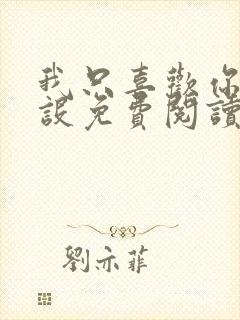 我只喜歡你
設免費閱讀
劉亦菲